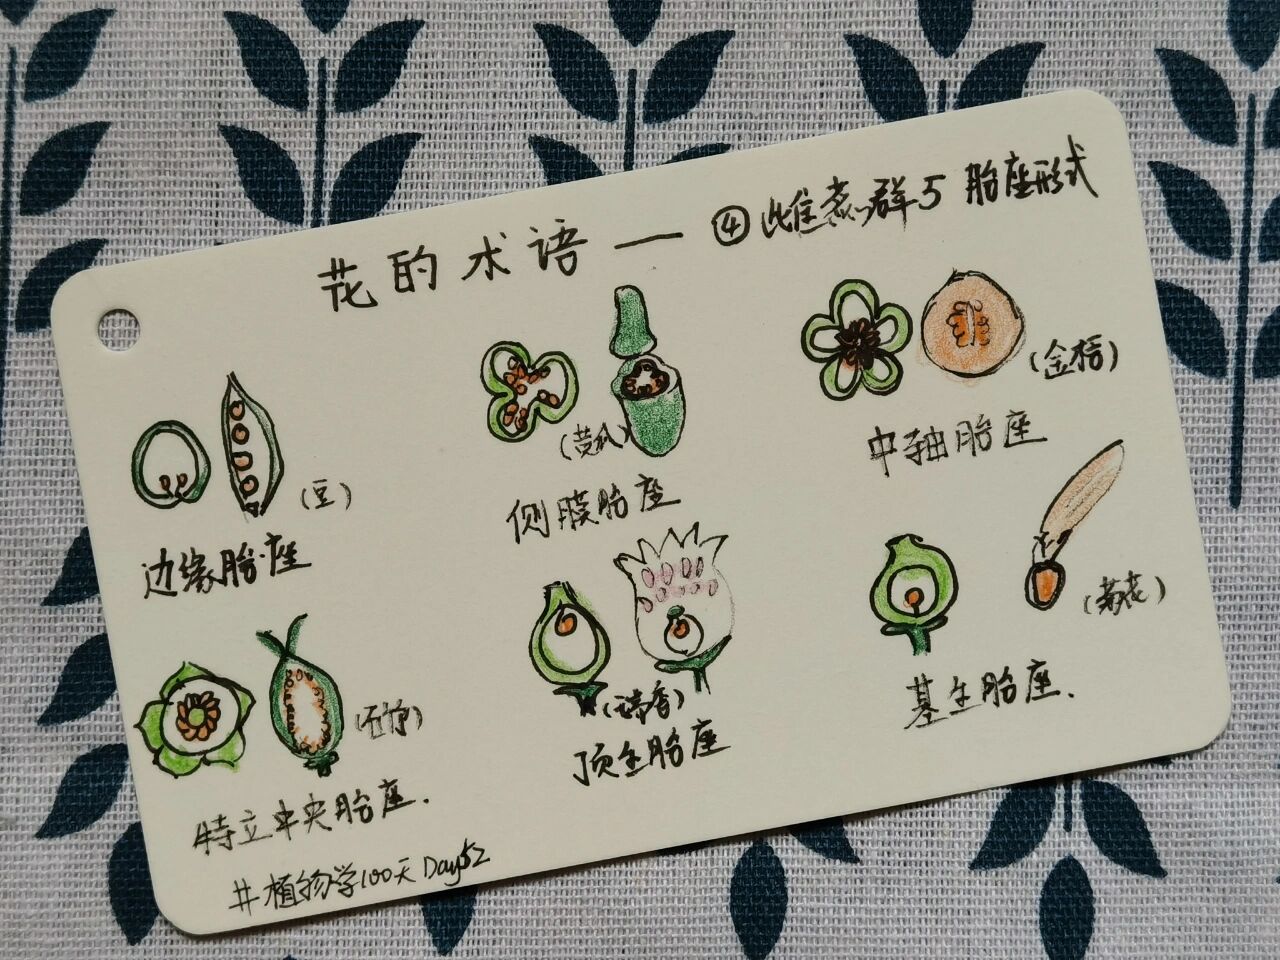 花的术语 — ④雌蕊群5 胎座形式
(豆)
边缘胎座
(黄瓜)
侧膜胎座
(金桔)
中轴胎座
(石竹)
特立中央胎座.
(瑞香)
顶生胎座
(菊花)
基生胎座.
#植物学100天 Day52